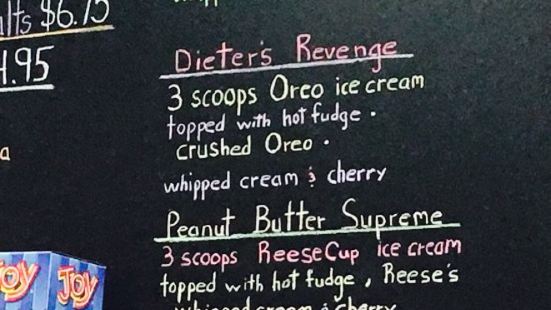 $6.75
.95
a
Dieter's Revenge
3 scoops Oreo ice cream
topped with hot fudge •
crushed Oreo •
whipped cream & cherry
Peanut Butter Supreme
3 scoops Reese Cup ice cream
topped with hot fudge, Reese's
whipped cream & cherry
JOY
JOY